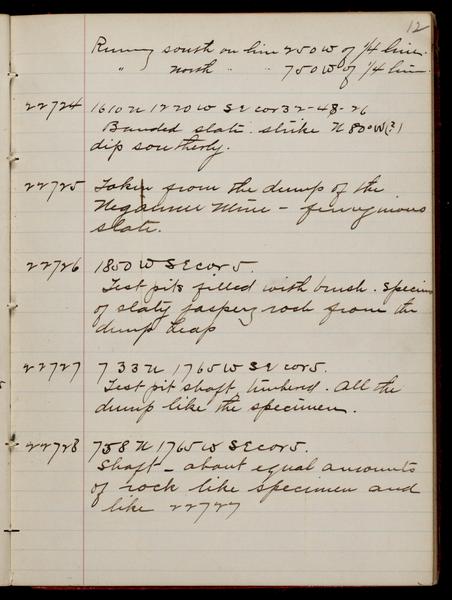 12
Running south on line 250 W of 1/4 line.
" north " " 750 W of 1/4 line.
22724 1610 N 1220 W SE cor 32-48-26
Banded slate. strike N 80° W (?)
dip southerly.
22725 Taken from the dump of the
Negaunee Mine - ferruginous
slate.
22726 1850 W SE cor 5.
Test pits filled with brush. Specimen
of slaty jaspery rock from the
dump heap
22727 733 N 1765 W SE cor 5.
Test pit shaft timbered. All the
dump like the specimen.
22728 758 N 1765 W SE cor 5.
Shaft - about equal amounts
of rock like specimen and
like 22727